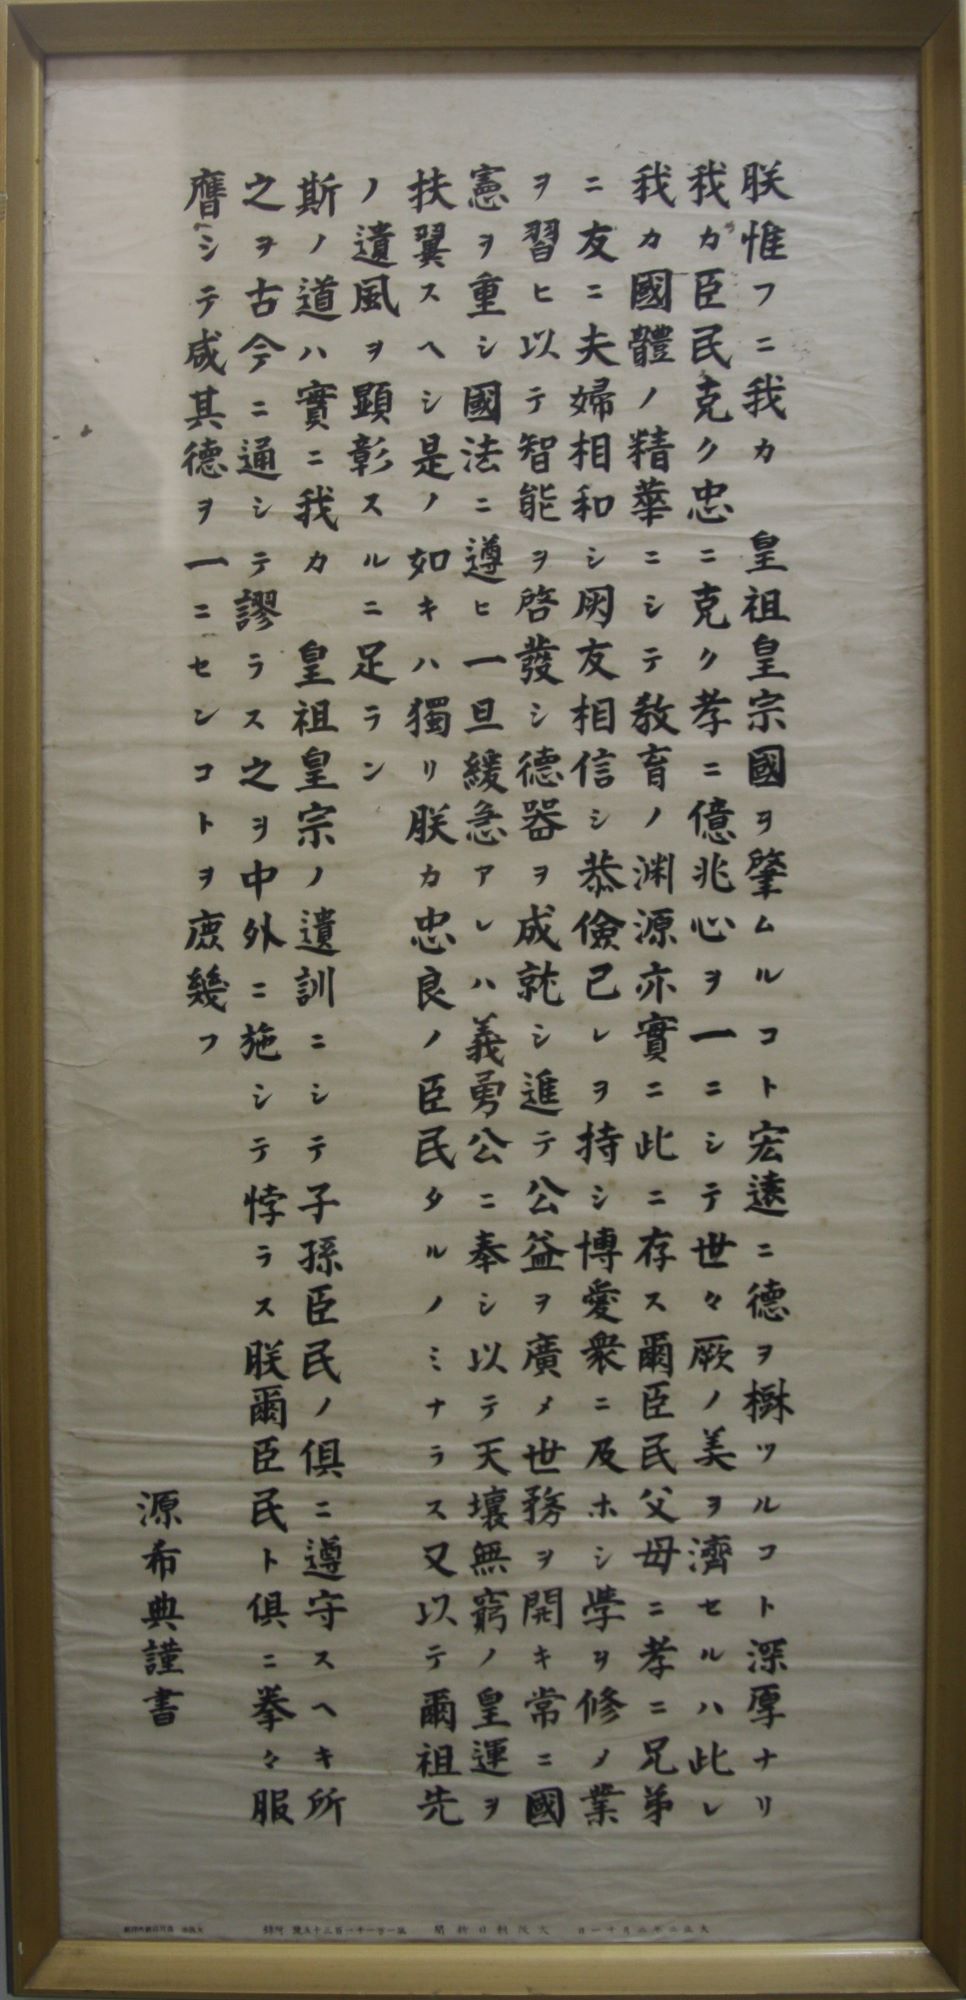 朕惟フニ我カ　皇祖皇宗國ヲ肇ムルコト宏遠ニ德ヲ樹ツルコト深厚ナリ
我カ臣民克ク忠ニ克ク孝ニ億兆心ヲ一ニシテ世々厥ノ美ヲ濟セルハ此レ
我カ國體ノ精華ニシテ教育ノ渊源亦實ニ此ニ存ス爾臣民父母ニ孝ニ兄弟
ニ友ニ夫婦相和シ朋友相信シ恭儉己レヲ持シ博愛衆ニ及ホシ學ヲ修メ業
ヲ習ヒ以テ智能ヲ啓發シ德器ヲ成就シ進テ公益ヲ廣メ世務ヲ開キ常ニ國
憲ヲ重シ國法ニ遵ヒ一旦緩急アレハ義勇公ニ奉シ以テ天壤無窮ノ皇運ヲ
扶翼スヘシ是ノ如キハ獨リ朕カ忠良ノ臣民タルノミナラス又以テ爾祖先
ノ遺風ヲ顯彰スルニ足ラン
斯ノ道ハ實ニ我カ　皇祖皇宗ノ遺訓ニシテ子孫臣民ノ俱ニ遵守スヘキ所
之ヲ古今ニ通シテ謬ラス之ヲ中外ニ施シテ悖ラス朕爾臣民ト俱ニ拳々服
膺シテ咸其德ヲ一ニセンコトヲ庶幾フ
源希典謹書
大阪朝日新聞